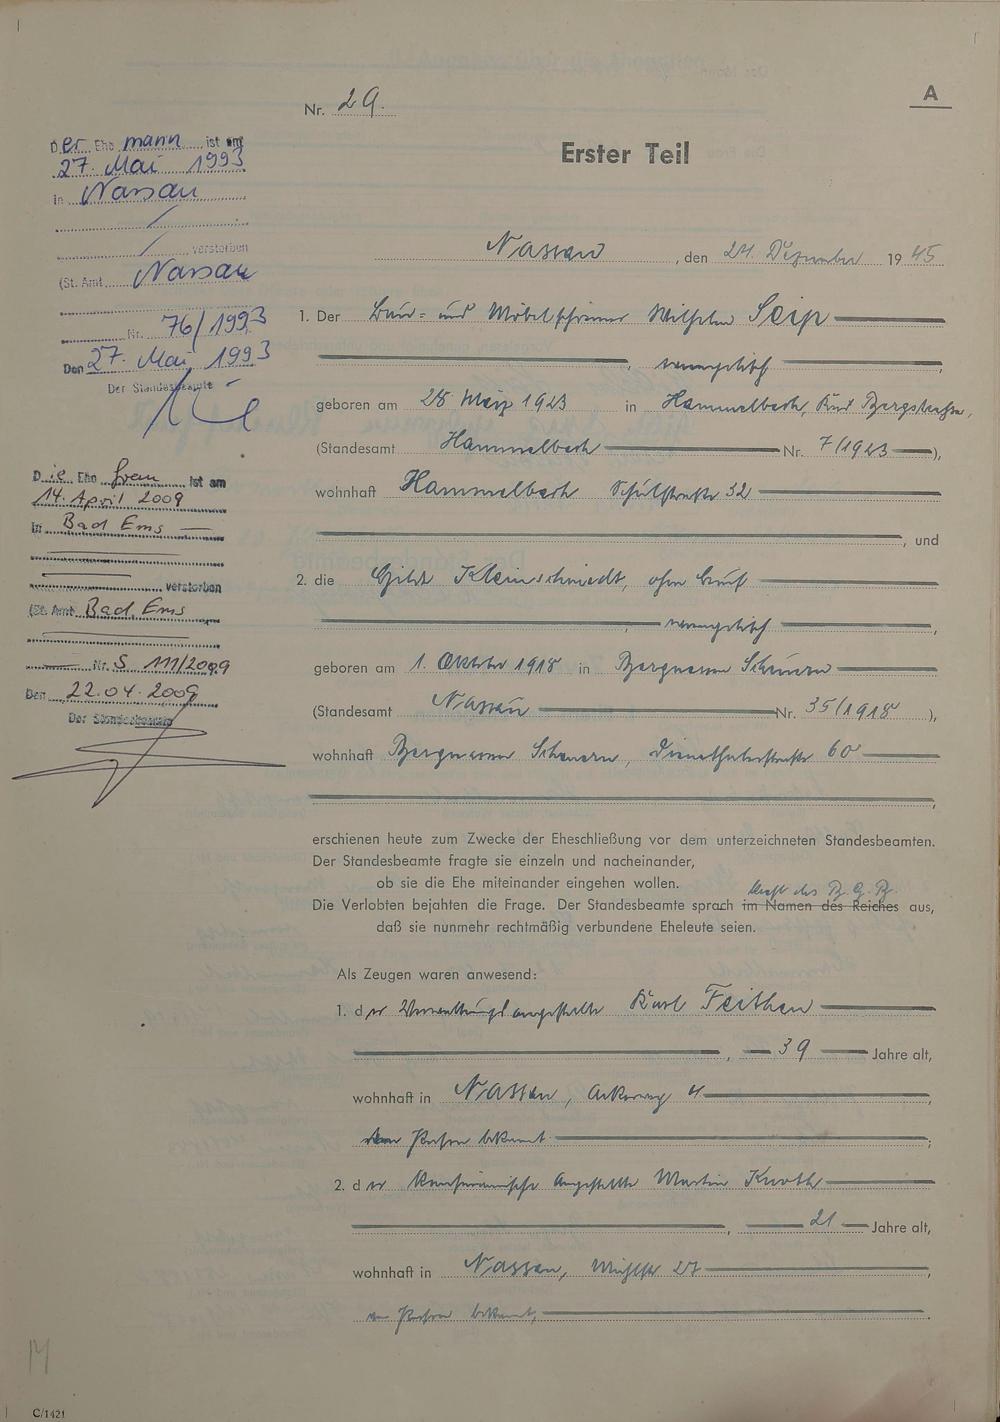 A
Nr. 29.
Erster Teil
Der Ehe mann ist am
27. Mai 1993
in Nassau
verstorben
(St. Amt Nassau
Nr. 76/1993
Den 27. Mai 1993
Der Standesbeamte
Die Ehe frau ist am
14. April 2009
in Bad Ems
verstorben
(St. Amt Bad Ems
Nr. S 111/2009
Den 22.04.2009
Der Standesbeamte
Nassau, den 24. Dezember 1945
1. Der Bau- und Möbelschreiner Wilhelm Seip
, evangelisch,
geboren am 28 März 1923 in Hammelbach, Bergstraße,
(Standesamt Hammelbach Nr. 7/1923),
wohnhaft Hammelbach Schulstraße 32
, und
2. die Kleinschmidt, ohne Beruf
, evangelisch,
geboren am 1. Oktober 1918 in Bergnassau Scheuern
(Standesamt Nassau Nr. 35/1918),
wohnhaft Bergnassau Scheuern, Dienethalerstraße 60
,
erschienen heute zum Zwecke der Eheschließung vor dem unterzeichneten Standesbeamten.
Der Standesbeamte fragte sie einzeln und nacheinander,
ob sie die Ehe miteinander eingehen wollen.
kraft des B.G.B.
Die Verlobten bejahten die Frage. Der Standesbeamte sprach im Namen des Reiches aus,
daß sie nunmehr rechtmäßig verbundene Eheleute seien.
Als Zeugen waren anwesend:
1. der Verwaltungsangestellte Karl Feithen
, 39 Jahre alt,
wohnhaft in Nassau, 4,
Person bekannt;
2. der Kaufmännische Angestellte Martin Knoth
, 21 Jahre alt,
wohnhaft in Nassau, 27,
Person bekannt,
14
C/1421